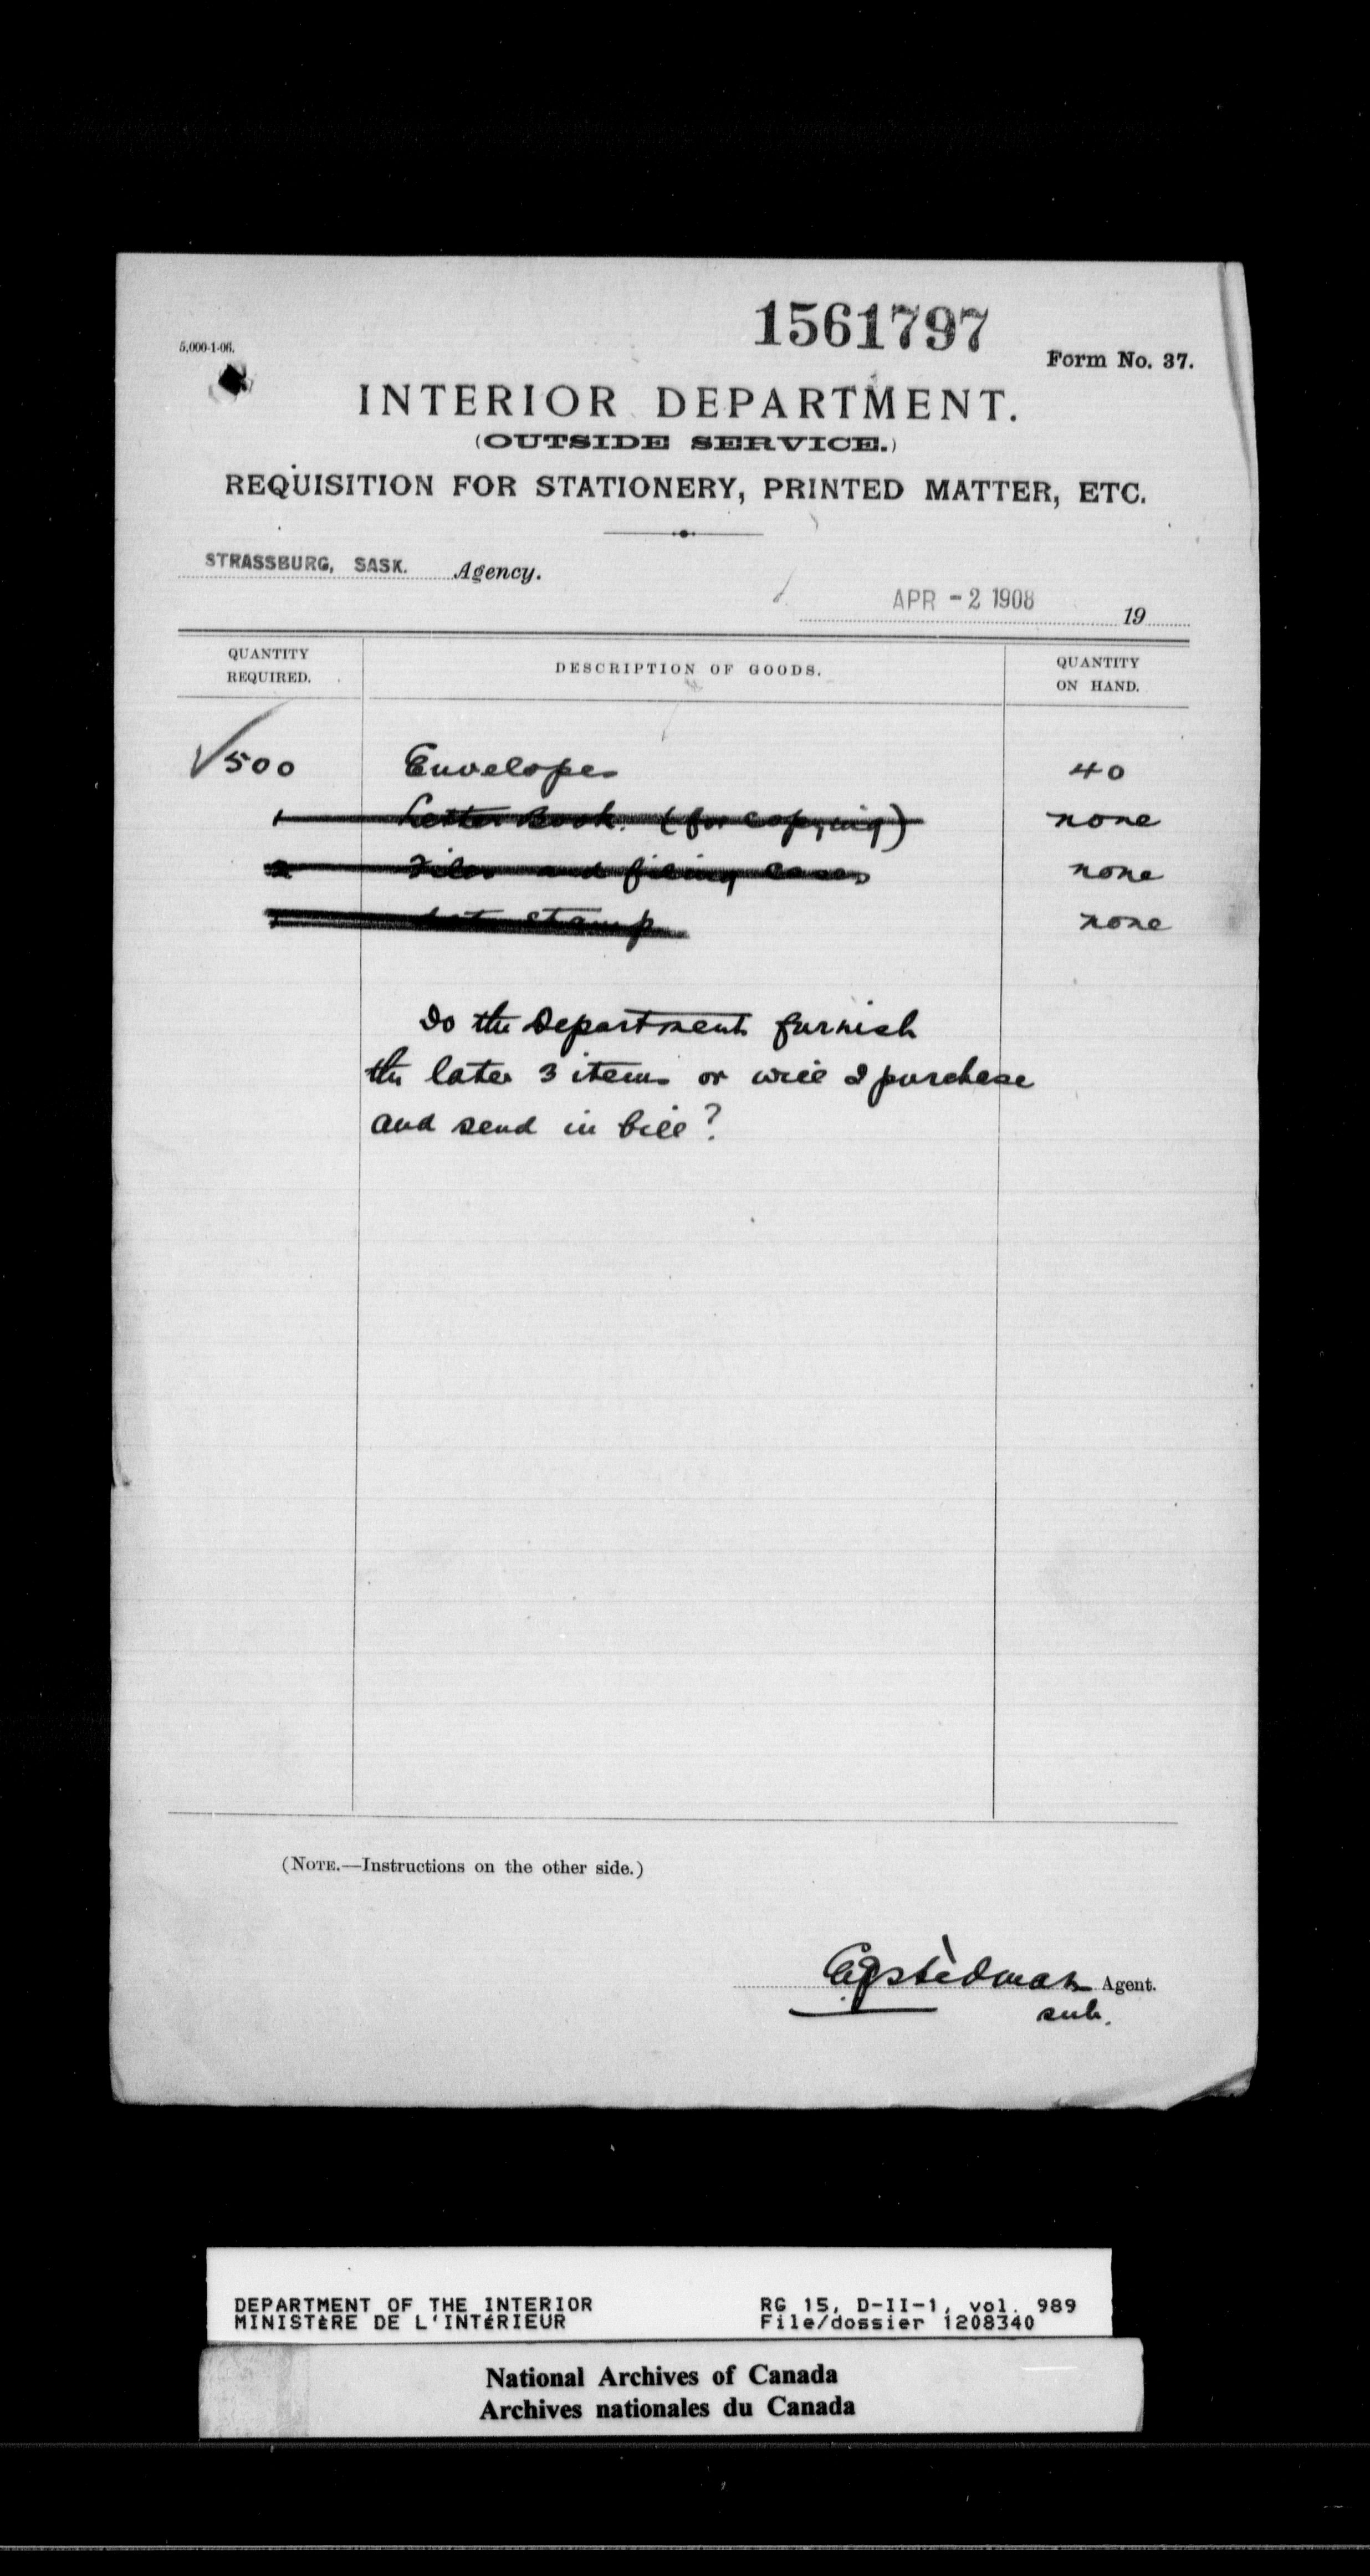 1561797
5,000-1-06.
Form No. 37.
INTERIOR DEPARTMENT.
(OUTSIDE SERVICE.)
REQUISITION FOR STATIONERY, PRINTED MATTER, ETC.
STRASSBURG, SASK. Agency.
APR - 2 1908 19
QUANTITY REQUIRED. DESCRIPTION OF GOODS. QUANTITY ON HAND.
500 Envelopes 40
1 Letter Book. (for copying) none
2 Files and filing cases none
1 stamp none
Do the Department furnish
the later 3 items or will I purchase
and send in bill?
(NOTE.—Instructions on the other side.)
Stedman Agent.
sub.
DEPARTMENT OF THE INTERIOR RG 15, D-II-1, vol. 989
MINISTÈRE DE L'INTÉRIEUR File/dossier 1208340
National Archives of Canada
Archives nationales du Canada